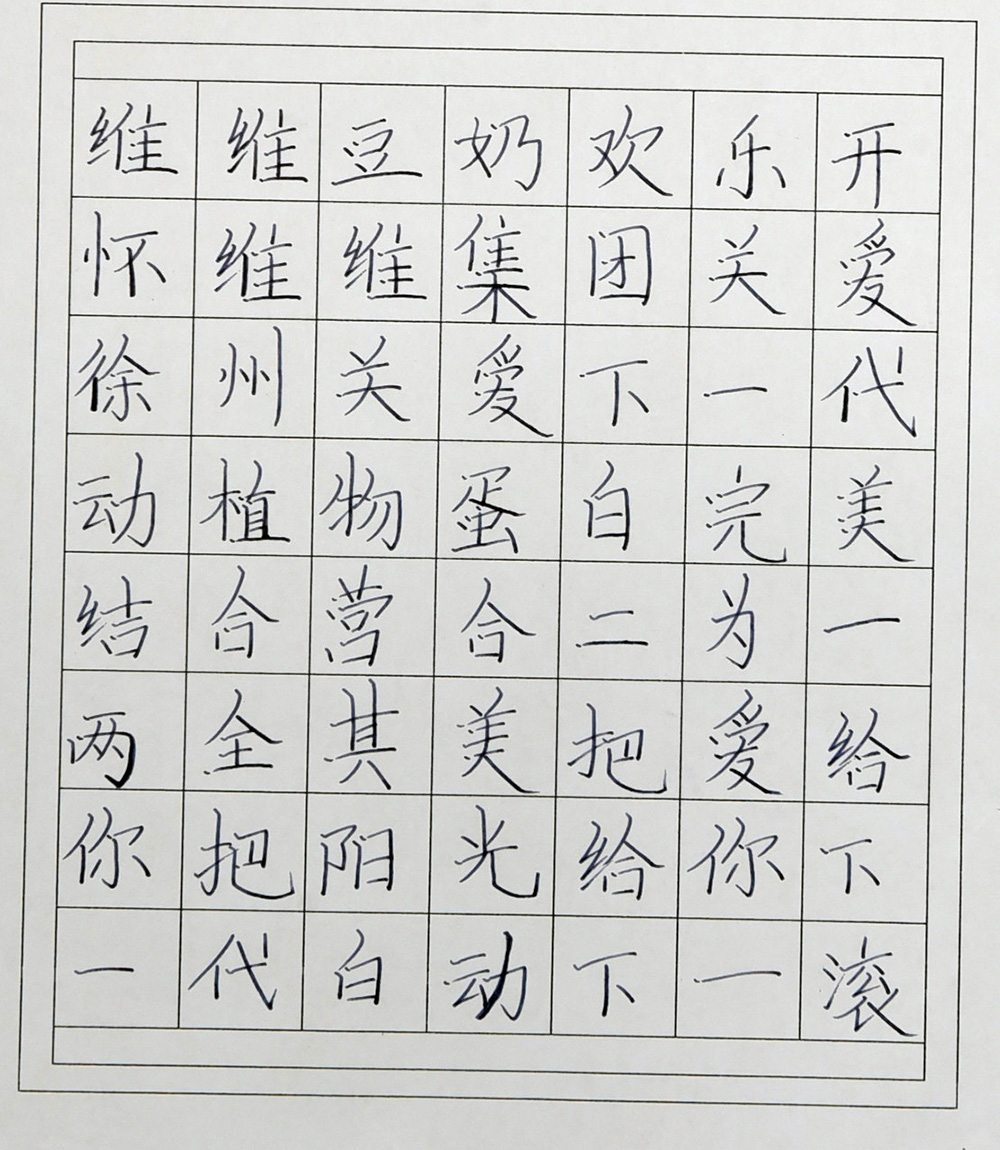 维维豆奶欢乐开
怀维维集团关爱
徐州关爱下一代
动植物蛋白完美
结合营合二为一
两全其美把爱给
你把阳光给你下
一代白动下一滚